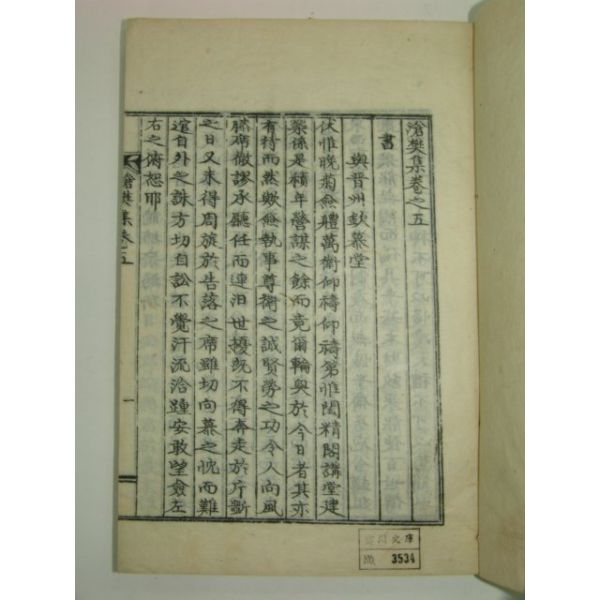 滄樊集卷之五
書
與晋州欽慕堂
伏惟晩菊僉軆萬衛仰禱仰禱第惟閣精閣講堂建
築係是積年營謀之餘而竟爾輪奐於今日者其亦
有待而然歟僉執事尊衛之誠賢勞之功令人向風
膝席微謬承聽任而連汩世擾旣不得奔走於斤斲
之日又未得周旋於告落之席雖切向慕之忱而難
逭自外之誅方切自訟不覺汗流洽踵安敢望僉左
右之俯恕耶
滄樊集卷之五
一
文庫
3534